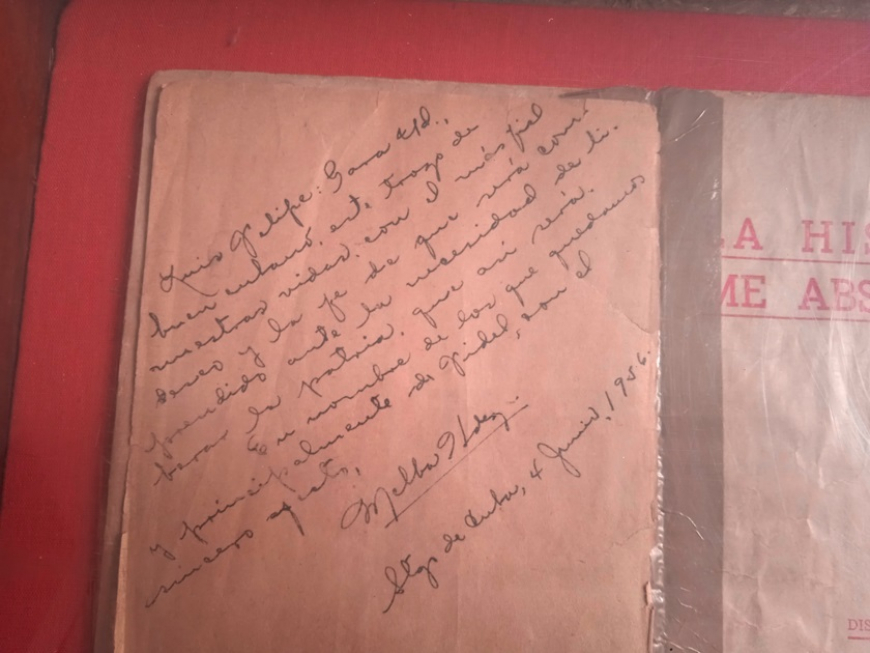 Luis Felipe: Para Ud.,
buen cubano, este trozo de
nuestras vidas, con el más fiel
deseo y la fe de que será com-
prendido ante la necesidad de li-
berar la patria, que así será.
En nombre de los que quedamos
y principalmente de Fidel, con el
sincero afecto,
Melba Hdez.
Stgo de Cuba, 4 Junio, 1956.
LA HIS
ME ABS
DIS